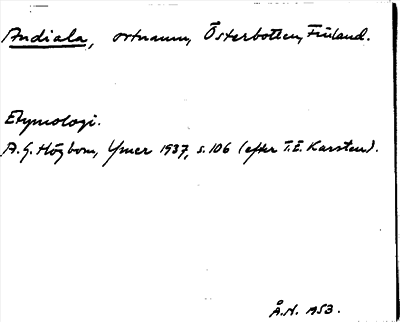 Andiala, ortnamn, Österbotten, Finland.
Etymologi.
A. G. Högbom, Ymer 1937, s. 106 (efter T. E. Karsten).
Å. N. 1953.